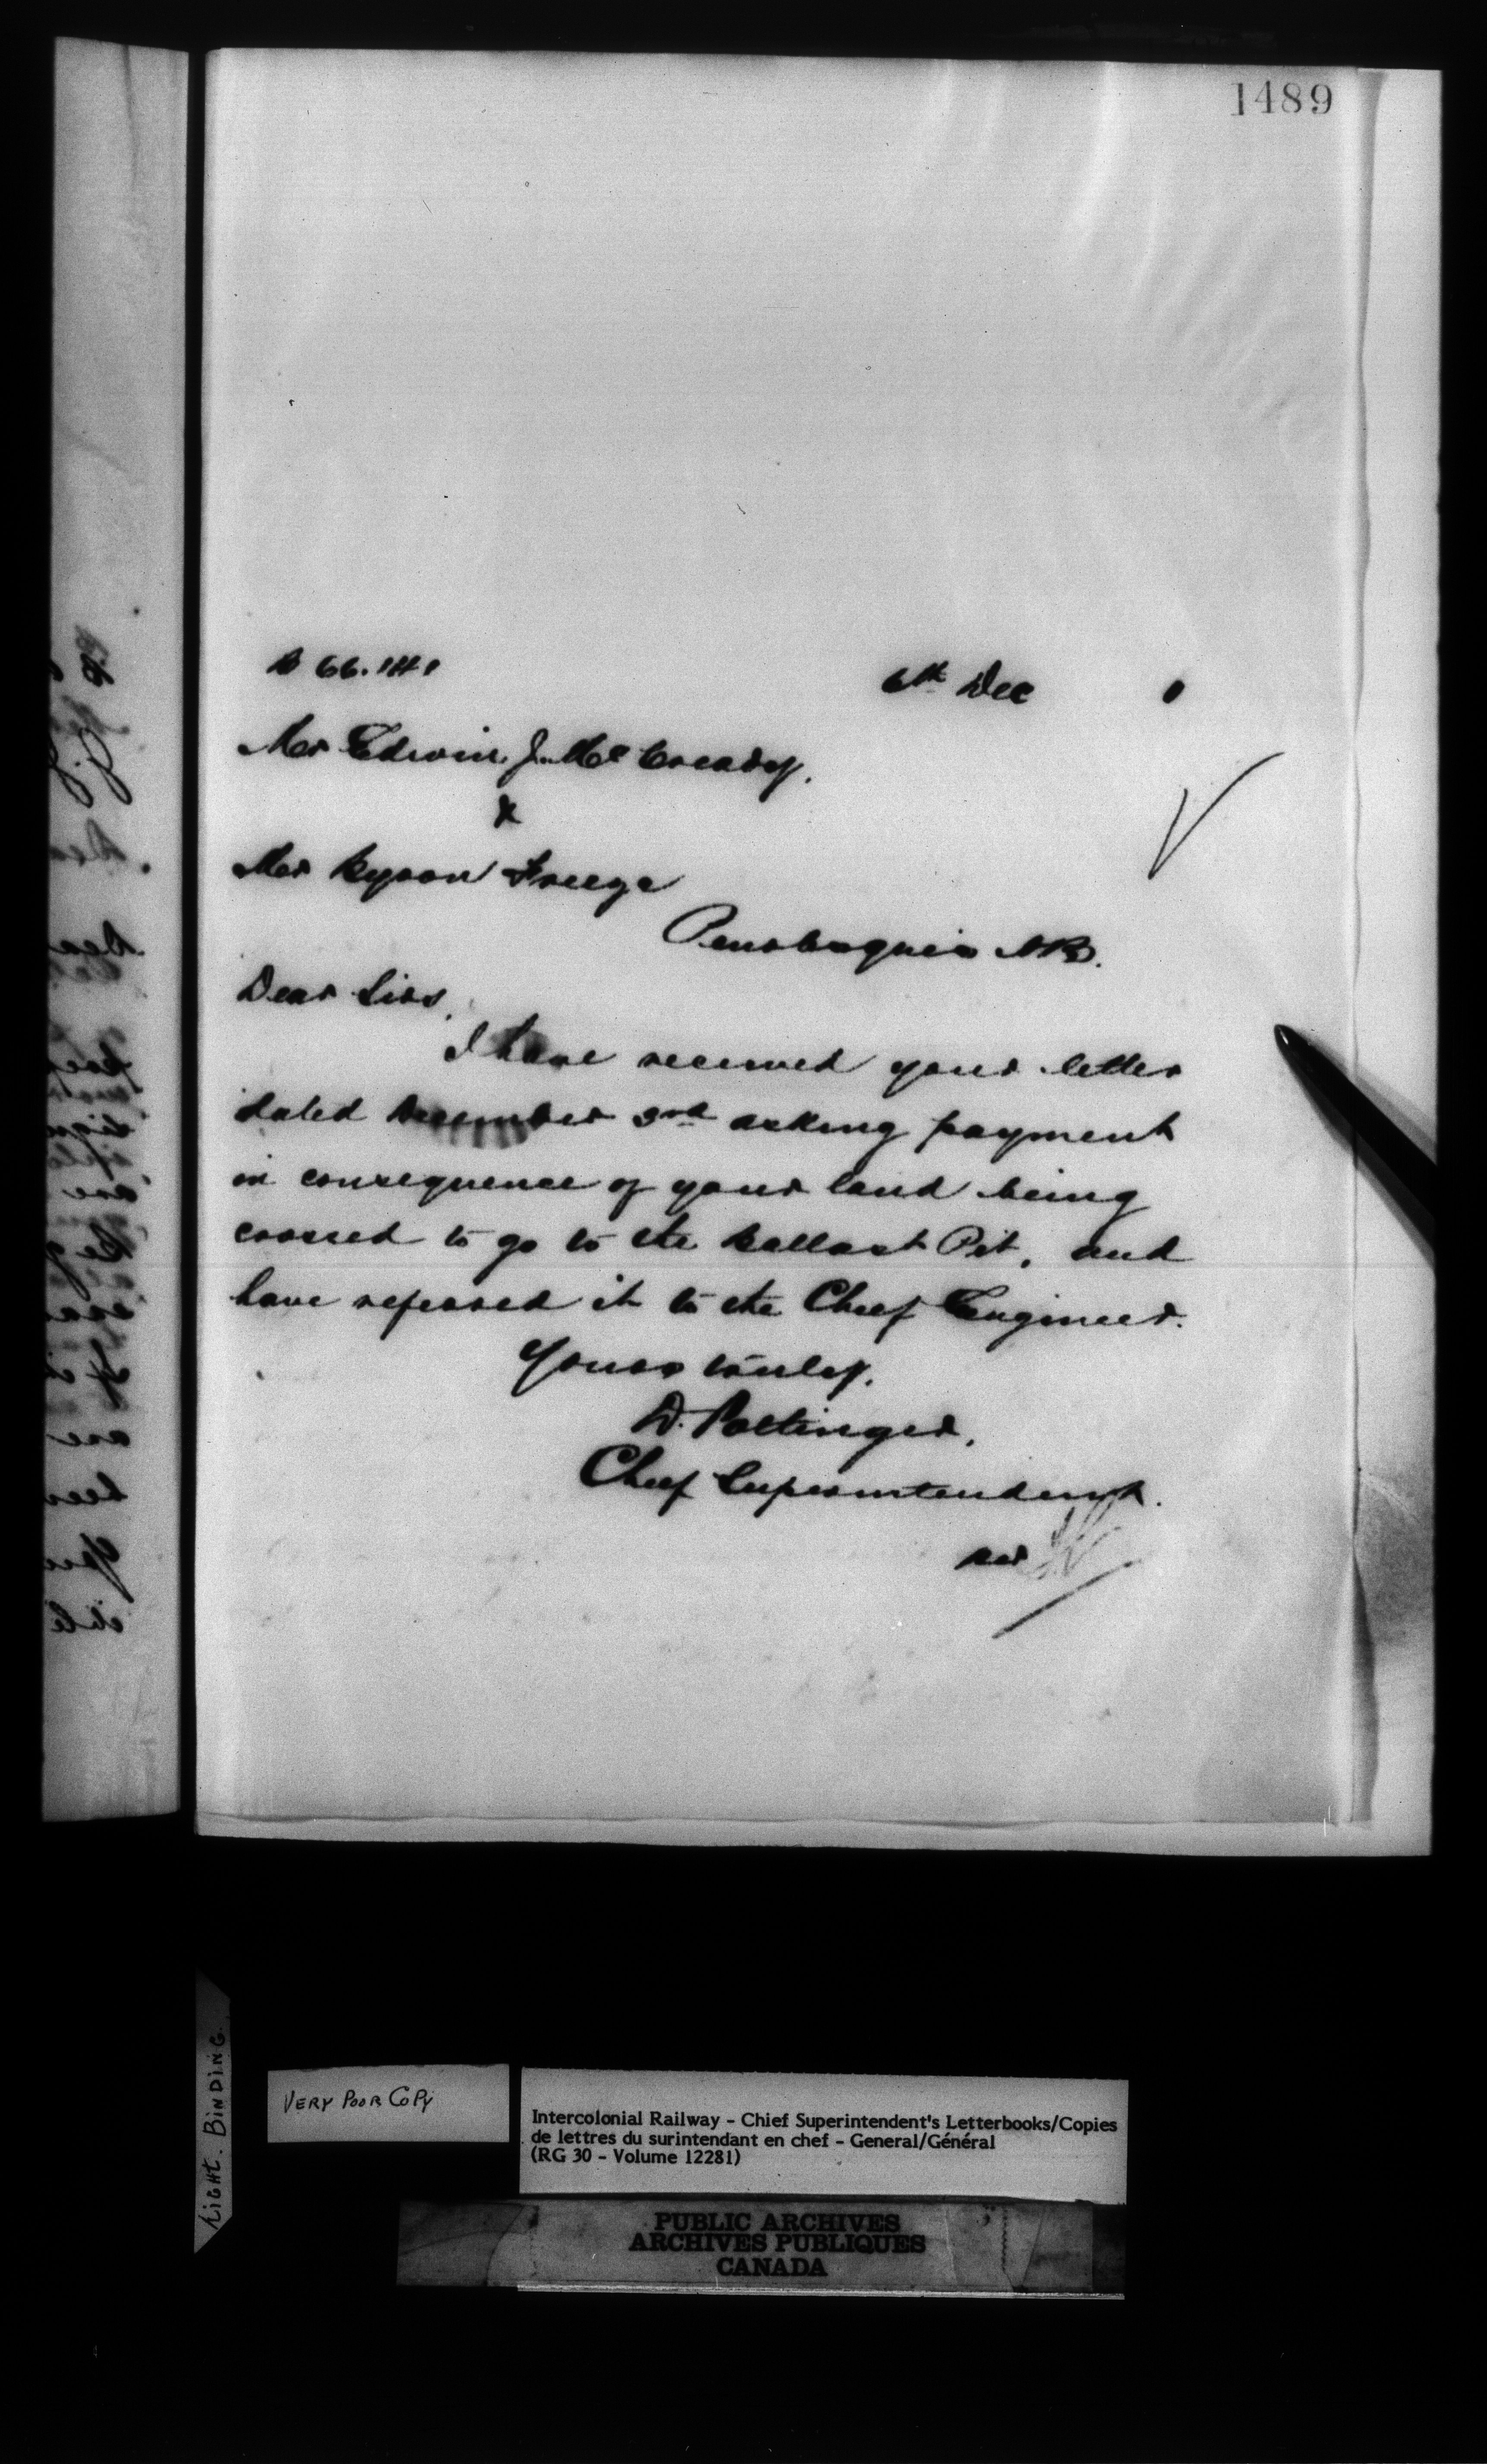 1489
6th Dec 0
Mr Edwin J. McCready.
&
Mr Byron Freeze
Penobsquis NB.
Dear Sirs,
I have received your letter
dated December 3rd asking payment
in consequence of your land being
crossed to go to the Ballast Pit, and
have referred it to the Chief Engineer.
Yours truly.
D. Pottinger,
Chief Superintendent.
VERY POOR COPY
TIGHT. BINDING.
Intercolonial Railway - Chief Superintendent's Letterbooks/Copies
de lettres du surintendant en chef - General/Général
(RG 30 - Volume 12281)
PUBLIC ARCHIVES
ARCHIVES PUBLIQUES
CANADA